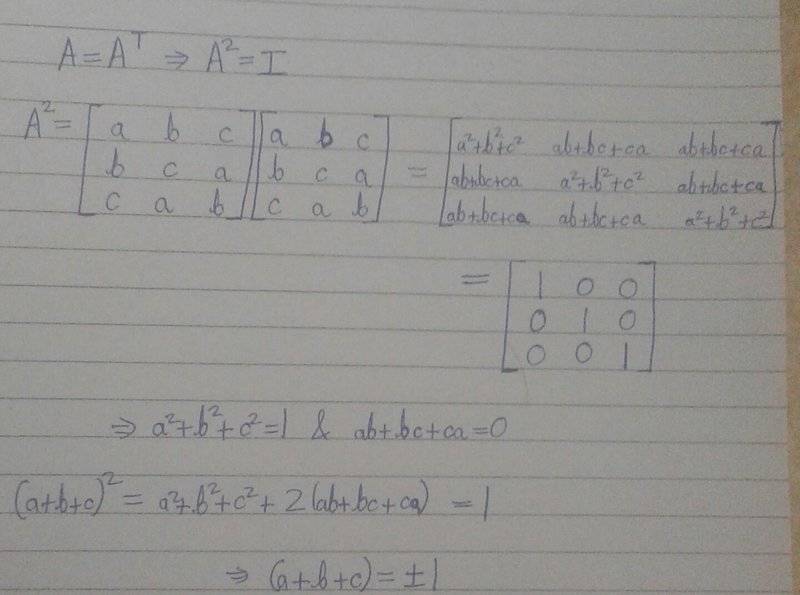 A = Aᵀ ⇒ A² = I
A² = [a b c] [a b c] = [a²+b²+c² ab+bc+ca ab+bc+ca]
[b c a] [b c a] [ab+bc+ca a²+b²+c² ab+bc+ca]
[c a b] [c a b] [ab+bc+ca ab+bc+ca a²+b²+c²]
= [1 0 0]
[0 1 0]
[0 0 1]
⇒ a²+b²+c²=1 & ab+bc+ca=0
(a+b+c)² = a²+b²+c²+2(ab+bc+ca) = 1
⇒ (a+b+c) = ±1